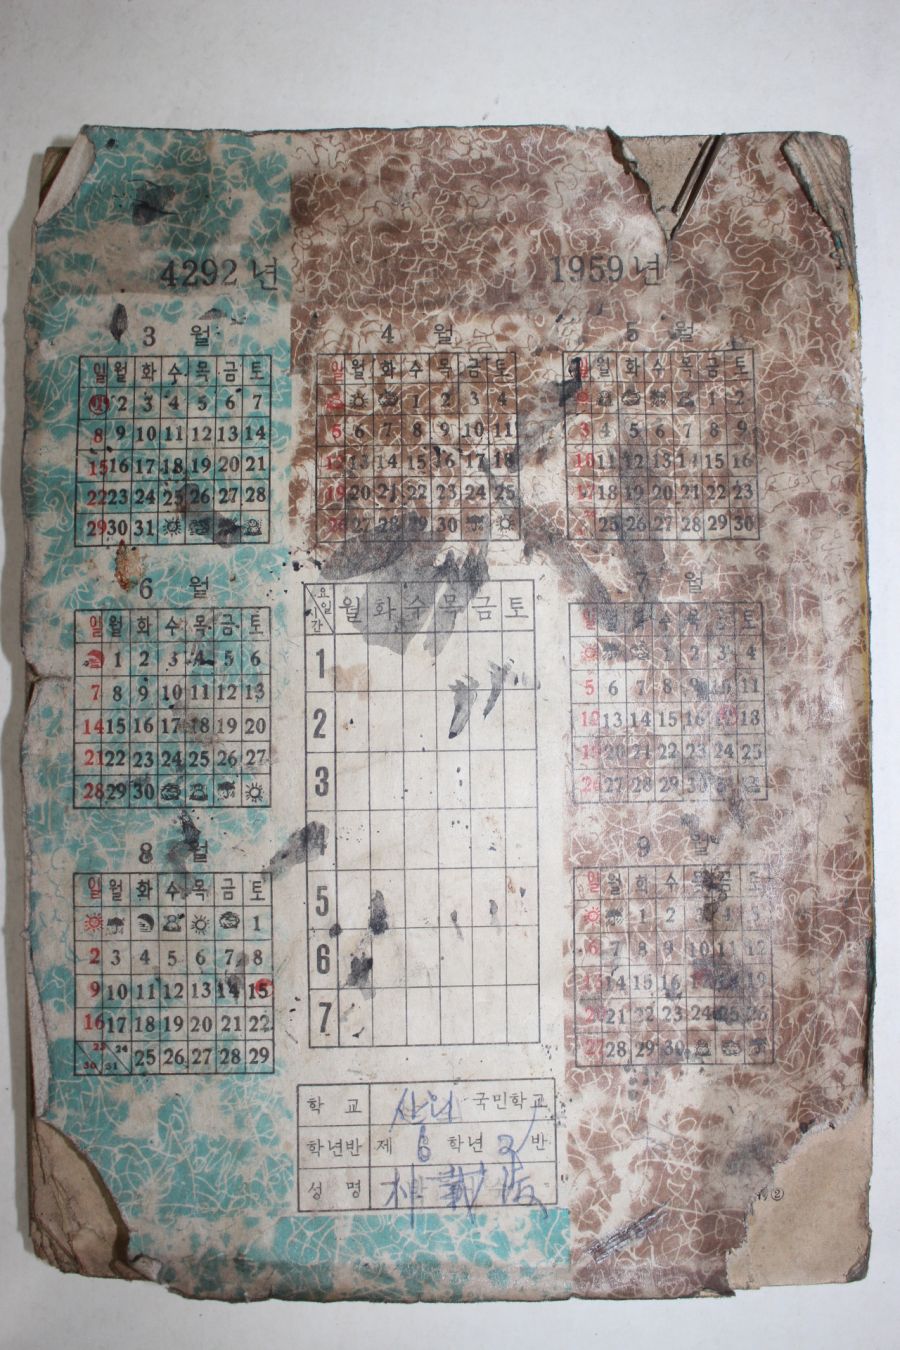 4292년 1959년
3 월 4 월 5 월
일 월 화 수 목 금 토
1 2 3 4 5 6 7
8 9 10 11 12 13 14
15 16 17 18 19 20 21
22 23 24 25 26 27 28
29 30 31
일 월 화 수 목 금 토
1 2 3 4
5 6 7 8 9 10 11
12 13 14 15 16 17 18
19 20 21 22 23 24 25
26 27 28 29 30
일 월 화 수 목 금 토
1 2
3 4 5 6 7 8 9
10 11 12 13 14 15 16
17 18 19 20 21 22 23
25 26 27 28 29 30
6 월 7 월
일 월 화 수 목 금 토
1 2 3 4 5 6
7 8 9 10 11 12 13
14 15 16 17 18 19 20
21 22 23 24 25 26 27
28 29 30
요일
시간
월 화 수 목 금 토
1
2
3
4
5
6
7
일 월 화 수 목 금 토
1 2 3 4
5 6 7 8 9 10 11
12 13 14 15 16 17 18
19 20 21 22 23 24 25
26 27 28 29 30 31
8 월 9 월
일 월 화 수 목 금 토
1
2 3 4 5 6 7 8
9 10 11 12 13 14 15
16 17 18 19 20 21 22
23 30 24 31 25 26 27 28 29
일 월 화 수 목 금 토
1 2 3 4 5
6 7 8 9 10 11 12
13 14 15 16 17 18 19
20 21 22 23 24 25 26
27 28 29 30
학 교 국민학교
학년반 제 6 학년 2 반
성 명
②